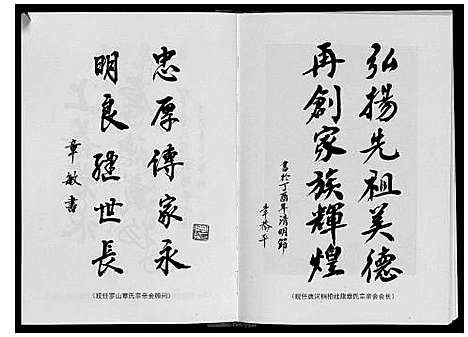 弘揚先祖美德
再創家族輝煌
書於丁酉年清明節
章恭平
(现任唐河桐柏社旗章氏宗亲会会长)
忠厚傳家永
明良繼世長
章敏書
(现任罗山章氏宗亲会顾问)